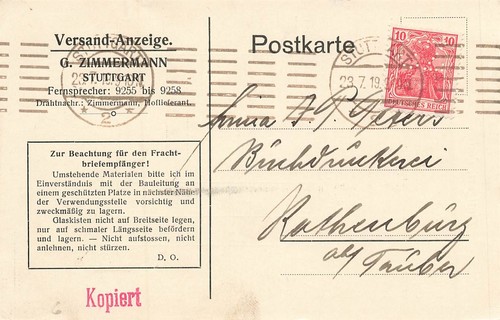 Versand-Anzeige.
G. ZIMMERMANN
STUTTGART
Fernsprecher: 9255 bis 9258
Drahtnachr.: Zimmermann, Hoflieferant.
Zur Beachtung für den Fracht-
briefempfänger!
Umstehende Materialen bitte ich im
Einverständnis mit der Bauleitung an
einem geschützten Platze in nächster Nähe
der Verwendungsstelle vorsichtig und
zweckmäßig zu lagern.
Glaskisten nicht auf Breitseite legen,
nur auf schmaler Längsseite befördern
und lagern. — Nicht aufstossen, nicht
anlehnen, nicht stürzen.
D. O.
Kopiert
Postkarte
STUTTGART
23.7.19
2
10 10
DEUTSCHES REICH
Firma J. P.
Buchdruckerei
Rothenburg
ob/
Tauber